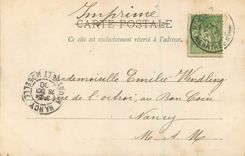 Imprimé
CARTE POSTALE
Ce côté est exclusivement réservé à l'adresse.
Mademoiselle Emélie Wendling
rue de l'octroi, au Bon Coin
Nancy
M-et-M
NANCY